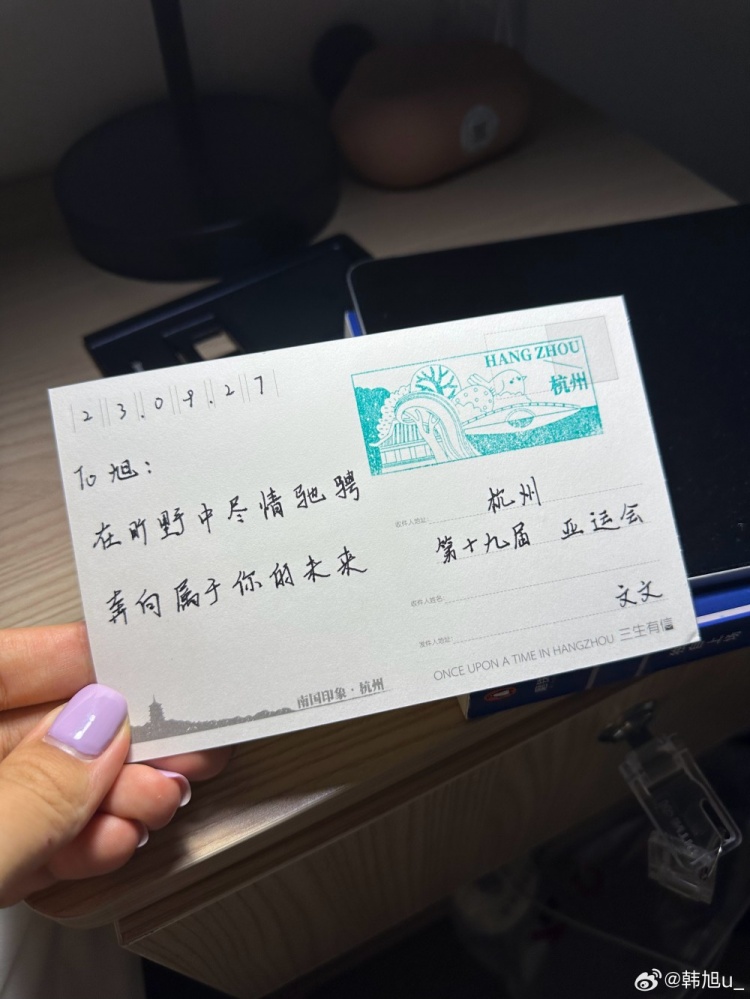 HANG ZHOU
杭州
23.09.27
To 旭：
在旷野中尽情驰骋
奔向属于你的未来
收件人地址:
杭州
第十九届 亚运会
收件人姓名:
文文
发件人地址:
ONCE UPON A TIME IN HANGZHOU 三生有信
南国印象·杭州
@韩旭u_